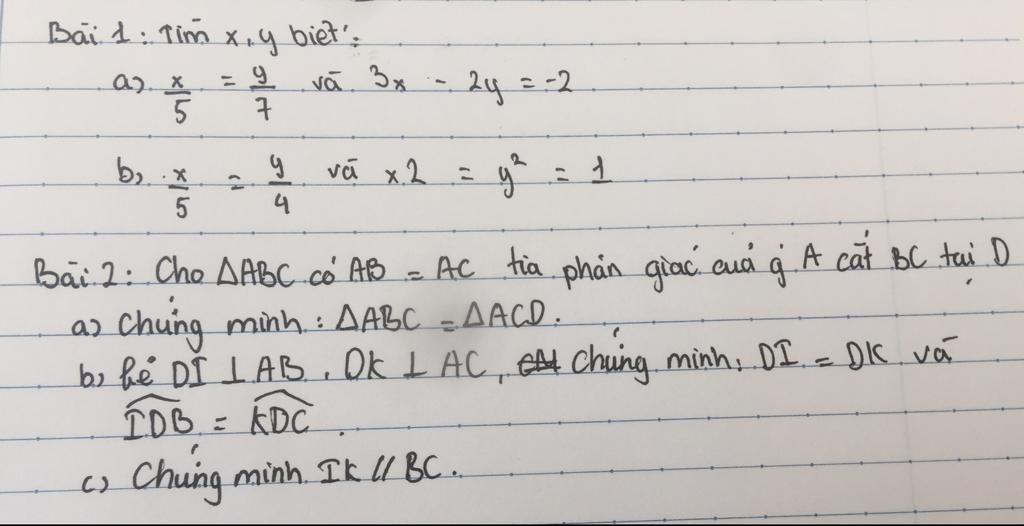 Bài 1: Tìm x, y biết:
a) x/5 = y/7 và 3x - 2y = -2
b, x/5 = y/4 và x2 = y² = 1
Bài 2: Cho ΔABC có AB = AC tia phân giác cuả g A cắt BC tại D
a) Chứng minh: ΔABC = ΔACD.
b, kẻ DI ⊥ AB, DK ⊥ AC, Chứng minh: DI = DK và
\widehat{IDB} = \widehat{KDC}.
c) Chứng minh. IK // BC.